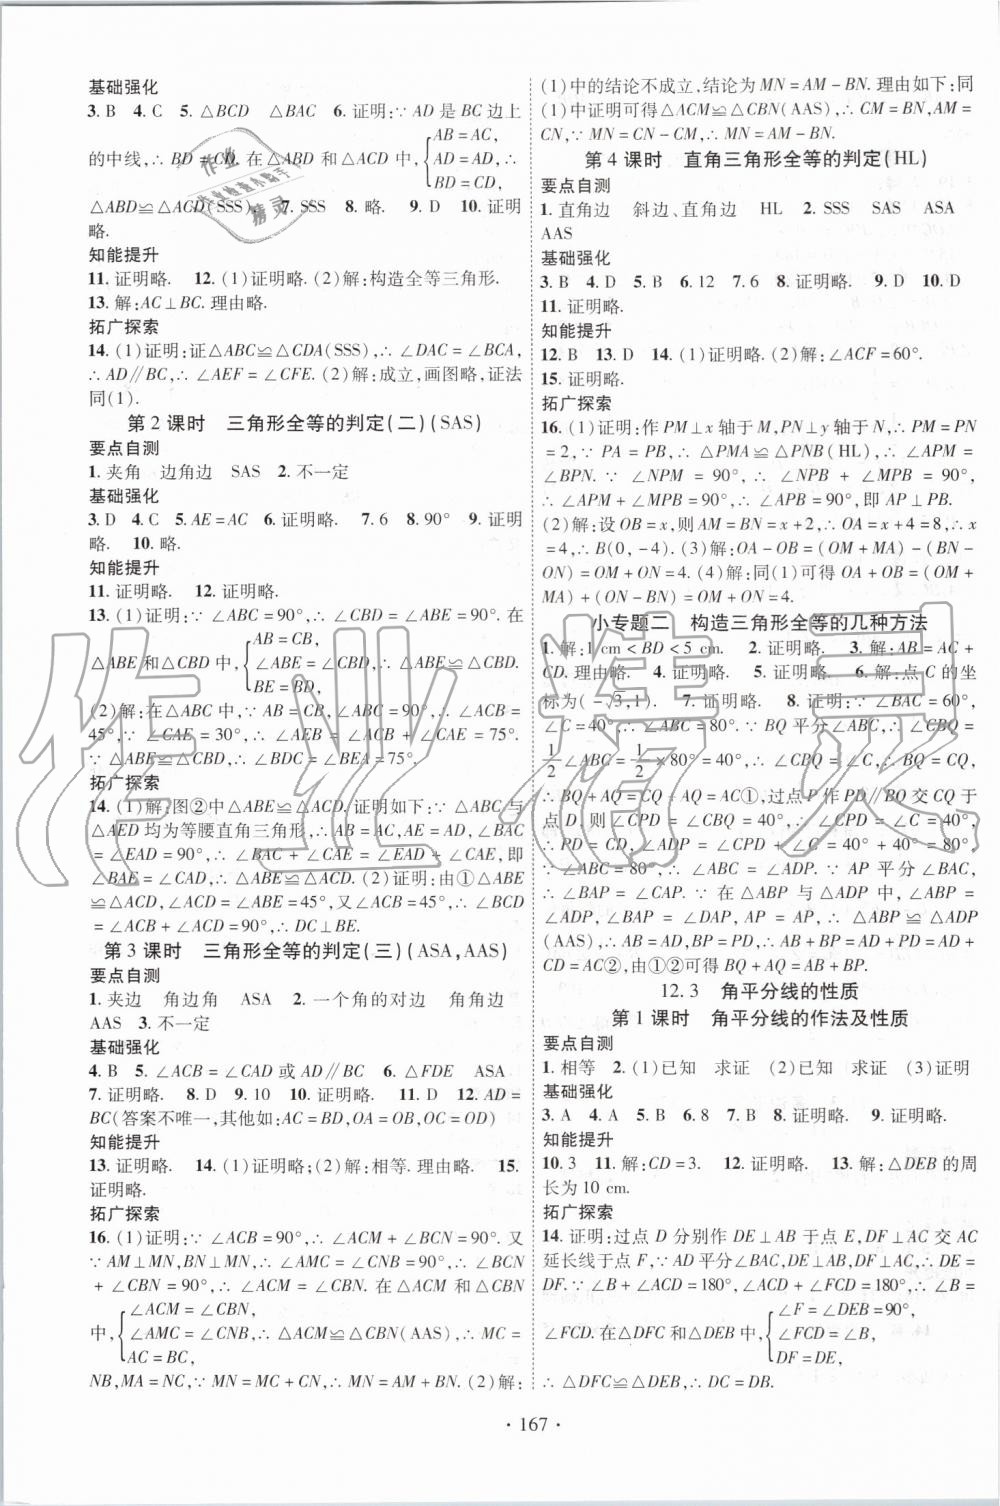 基础强化
3. B  4. C  5. △BCD  △BAC  6. 证明:∵AD 是 BC 边上
的中线,∴BD=CD. 在△ABD 和△ACD 中,{AB=AC, AD=AD, BD=CD, ∴
△ABD≌△ACD(SSS).  7. SSS  8. 略.  9. D  10. 证明
略.
知能提升
11. 证明略.  12. (1)证明略. (2)解:构造全等三角形.
13. 解:AC⊥BC. 理由略.
拓广探索
14. (1)证明:证△ABC≌△CDA(SSS),∴∠DAC=∠BCA,
∴AD∥BC,∴∠AEF=∠CFE. (2)解:成立,画图略,证法
同(1).
第 2 课时  三角形全等的判定(二)(SAS)
要点自测
1. 夹角  边角边  SAS  2. 不一定
基础强化
3. D  4. C  5. AE=AC  6. 证明略.  7. 6  8. 90°  9. 证明
略.  10. 略.
知能提升
11. 证明略.  12. 证明略.
13. (1)证明:∵∠ABC=90°,∴∠CBD=∠ABE=90°. 在
△ABE 和△CBD 中,{AB=CB, ∠ABE=∠CBD, BE=BD, ∴△ABE≌△CBD.
(2)解:在△ABC 中,∵AB=CB,∠ABC=90°,∴∠ACB=
45°,∵∠CAE=30°,∴∠AEB=∠ACB+∠CAE=75°.
∵△ABE≌△CBD,∴∠BDC=∠BEA=75°.
拓广探索
14. (1)解:图②中△ABE≌△ACD. 证明如下:∵△ABC 与
△AED 均为等腰直角三角形,∴AB=AC,AE=AD,∠BAC
=∠EAD=90°,∴∠BAC+∠CAE=∠EAD+∠CAE,即
∠BAE=∠CAD,∴△ABE≌△ACD. (2)证明:由①△ABE
≌△ACD,∠ACD=∠ABE=45°,又∠ACB=45°,∴∠BCD
=∠ACB+∠ACD=90°,∴DC⊥BE.
第 3 课时  三角形全等的判定(三)(ASA,AAS)
要点自测
1. 夹边  角边角  ASA  2. 一个角的对边  角角边
AAS  3. 不一定
基础强化
4. B  5. ∠ACB=∠CAD 或 AD∥BC  6. ∠FDE  ASA
7. 证明略.  8. D  9. 10  10. 证明略.  11. D  12. AD=
BC(答案不唯一,其他如:AC=BD,OA=OB,OC=OD)
知能提升
13. 证明略.  14. (1)证明略;(2)解:相等. 理由略.  15.
证明略.
拓广探索
16. (1)证明:∵∠ACB=90°,∴∠ACM+∠BCN=90°. 又
∵AM⊥MN,BN⊥MN,∴∠AMC=∠CNB=90°,∴∠BCN
+∠CBN=90°,∴∠ACM=∠CBN. 在△ACM 和△CBN
中,{∠ACM=∠CBN, ∠AMC=∠CNB, AC=BC, ∴△ACM≌△CBN(AAS),∴MC=
NB,MA=NC,∵MN=MC+CN,∴MN=AM+BN. (2)解:
(1)中的结论不成立,结论为 MN=AM-BN. 理由如下:同
(1)中证明可得△ACM≌△CBN(AAS),∴CM=BN,AM=
CN,∵MN=CN-CM,∴MN=AM-BN.
第 4 课时  直角三角形全等的判定(HL)
要点自测
1. 直角边  斜边、直角边  HL  2. SSS  SAS  ASA
AAS
基础强化
3. B  4. D  5. B  6. 12  7. 6  8. 证明略.  9. D  10. D
11. 证明略.
知能提升
12. B  13. D  14. (1)证明略. (2)解:∠ACF=60°.
15. 证明略.
拓广探索
16. (1)证明:作 PM⊥x 轴于 M,PN⊥y 轴于 N,∴PM=PN
=2,∵PA=PB,∴△PMA≌△PNB(HL),∴∠APM=
∠BPN. ∵∠NPM=90°,∴∠NPB+∠MPB=90°,
∴∠APM+∠MPB=90°,∴∠APB=90°,即 AP⊥PB.
(2)解:设 OB=x,则 AM=BN=x+2,∴OA=x+4=8,∴x
=4,∴B(0,-4). (3)解:OA-OB=(OM+MA)-(BN-
ON)=OM+ON=4. (4)解:同(1)可得 OA+OB=(OM+
MA)+(BN-ON)=OM+ON=4.
小专题二  构造三角形全等的几种方法
1. 解:1 cm<BD<5 cm.  2. 证明略.  3. 解:AB=AC+
CD. 理由略.  4. 证明略.  5. 证明略.  6. 解:点 C 的坐
标为(-√3,1).  7. 证明略.  8. 证明:∵∠BAC=60°,
∠C=40°,∴∠ABC=80°. ∵BQ 平分∠ABC,∴∠CBQ=
1/2∠ABC=1/2×80°=40°,∴∠CBQ=∠C,∴BQ=CQ,
∴BQ+AQ=CQ+AQ=AC①,过点 P 作 PD∥BQ 交 CQ 于
点 D,则∠CPD=∠CBQ=40°,∴∠CPD=∠C=40°,
∴PD=CD,∠ADP=∠CPD+∠C=40°+40°=80°.
∵∠ABC=80°,∴∠ABC=∠ADP. ∵AP 平分∠BAC,
∴∠BAP=∠CAP. ∵在△ABP 与△ADP 中,∠ABP=
∠ADP,∠BAP=∠DAP,AP=AP,∴△ABP≌△ADP
(AAS),∴AB=AD,BP=PD,∴AB+BP=AD+PD=AD+
CD=AC②,由①②可得 BQ+AQ=AB+BP.
12.3  角平分线的性质
第 1 课时  角平分线的作法及性质
要点自测
1. 相等  2. (1)已知  求证  (2)已知  求证  (3)证明
基础强化
3. A  4. A  5. B  6. 8  7. B  8. 证明略.  9. 证明略.
知能提升
10. 3  11. 解:CD=3.  12. 证明略.  13. 解:△DEB 的周
长为 10 cm.
拓广探索
14. 证明:过点 D 分别作 DE⊥AB 于点 E,DF⊥AC 交 AC
延长线于点 F,∵AD 平分∠BAC,DE⊥AB,DF⊥AC,∴DE=
DF. ∵∠B+∠ACD=180°,∠ACD+∠FCD=180°,∴∠B=
∠FCD. 在△DFC 和△DEB 中,{∠F=∠DEB=90°, ∠FCD=∠B, DF=DE,
∴△DFC≌△DEB,∴DC=DB.
· 167 ·
作业精灵